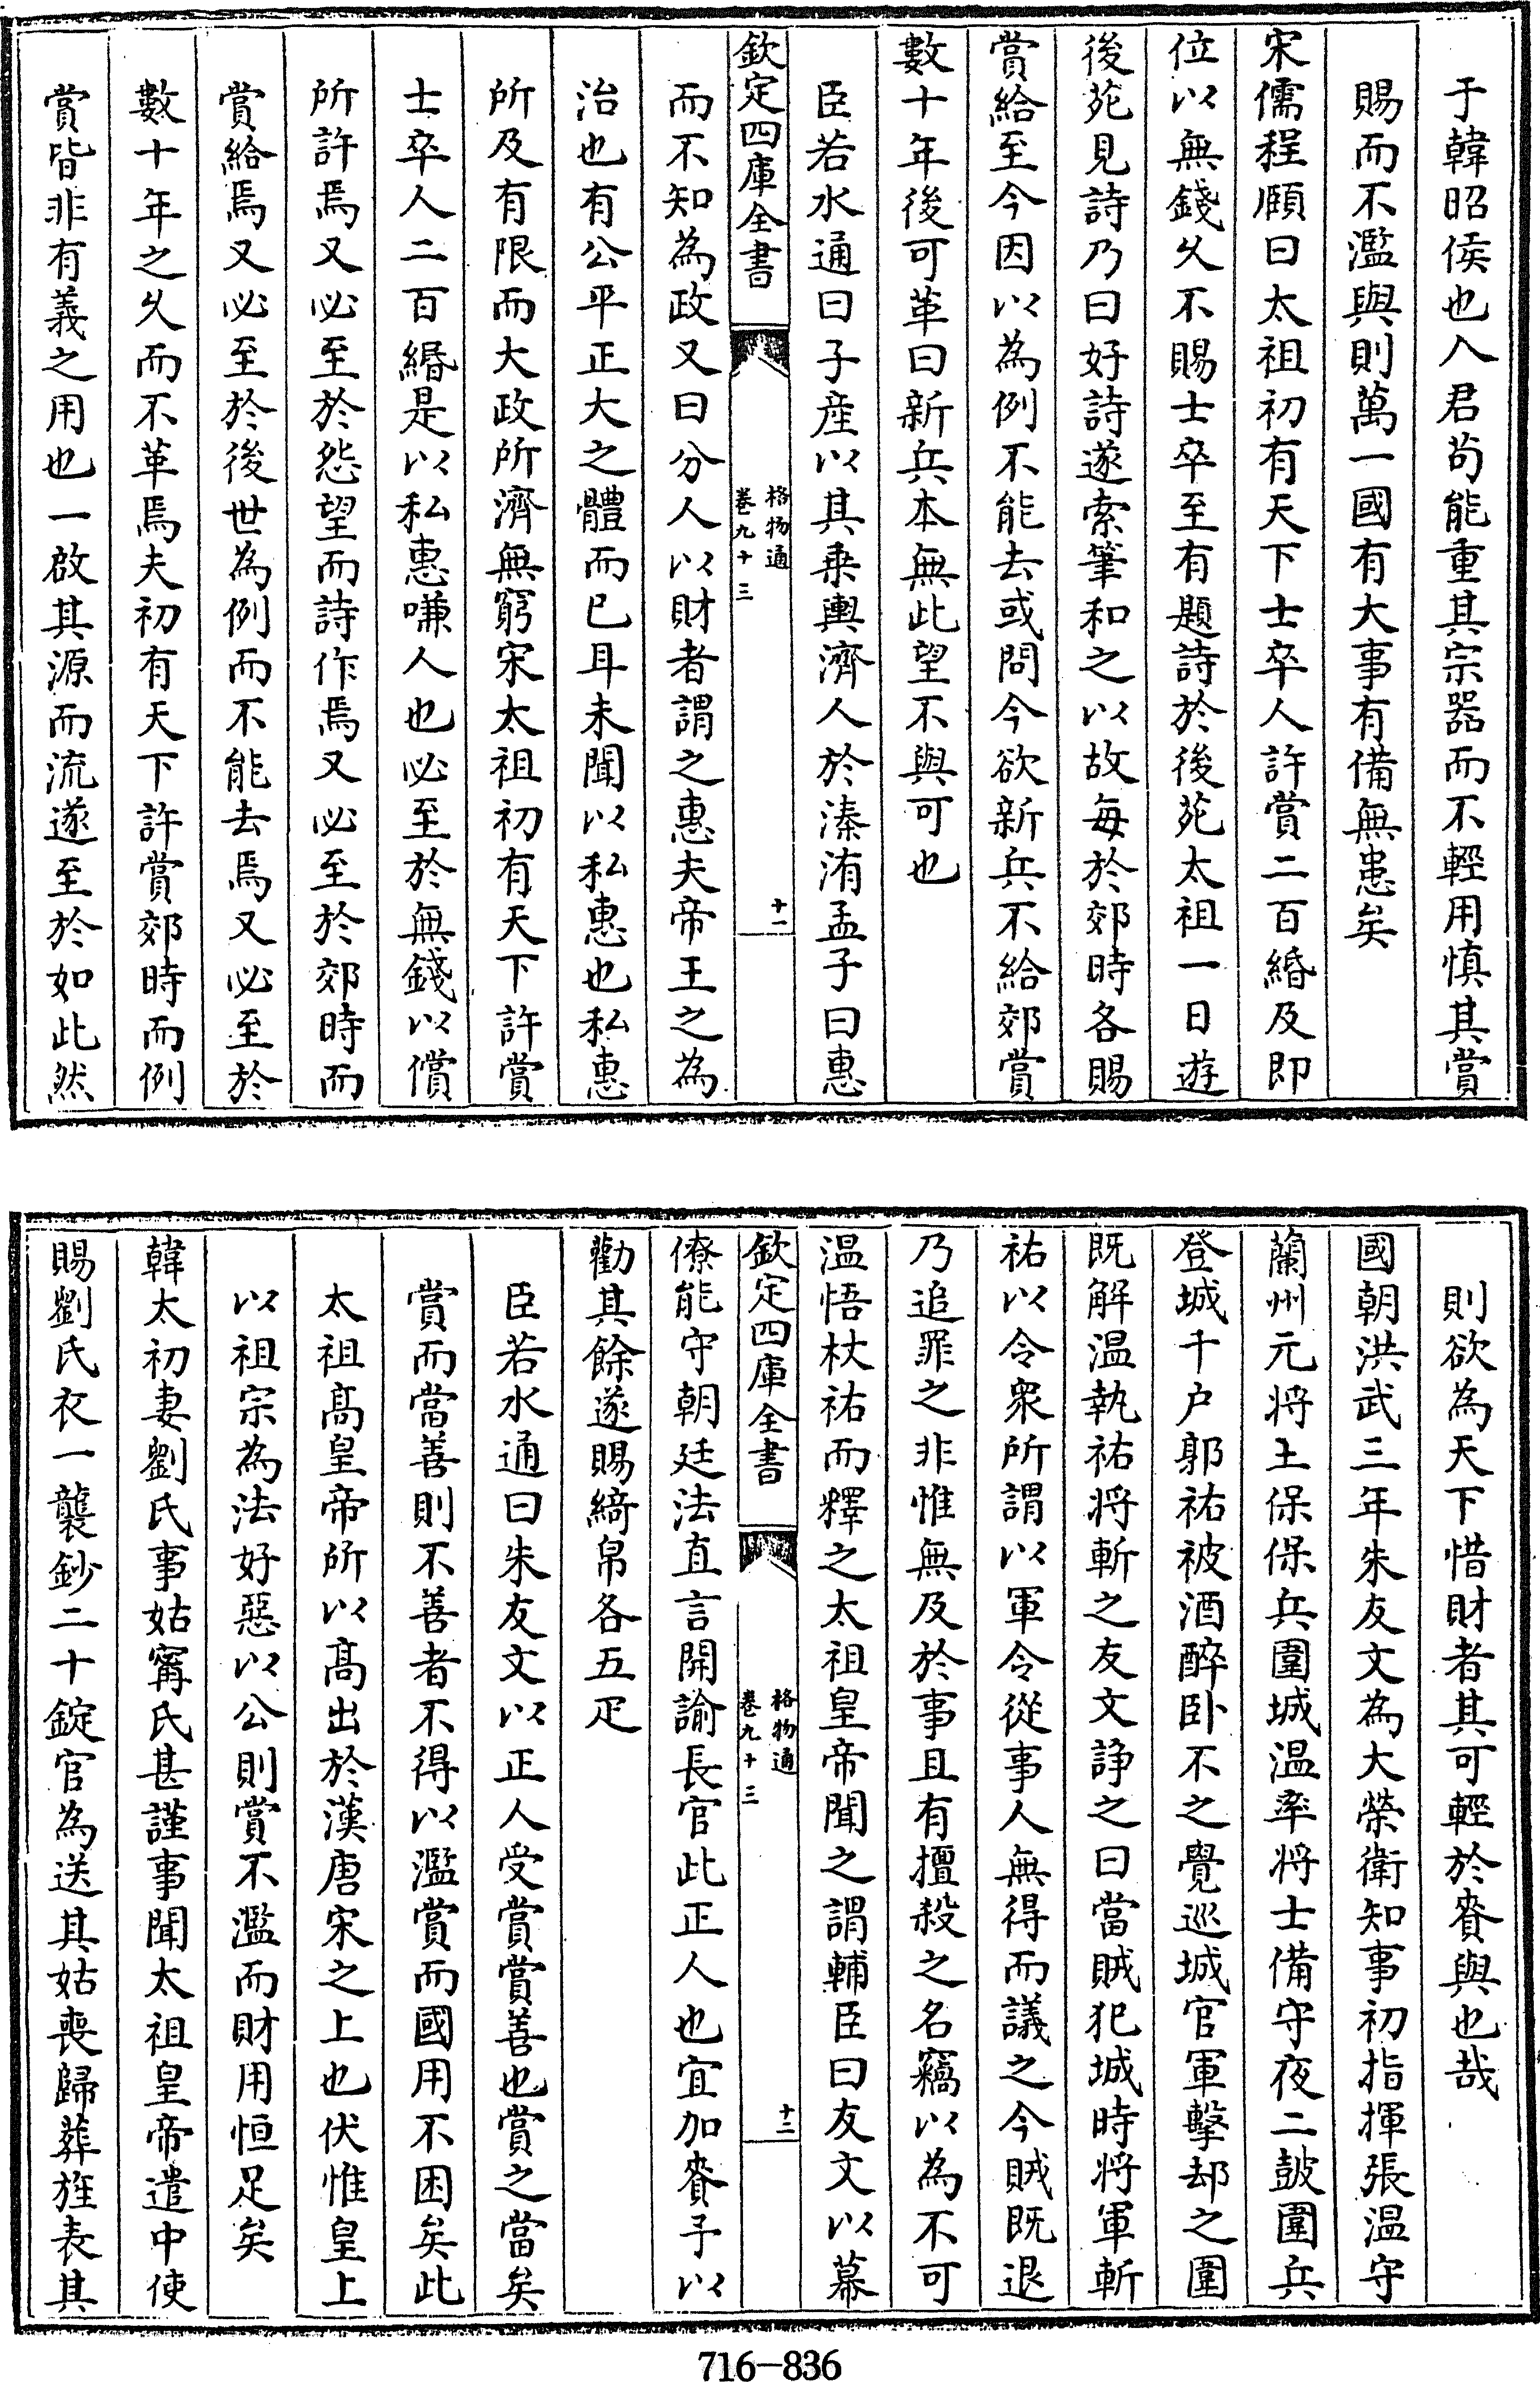 于韓昭侯也人君茍能重其宗器而不輕用慎其賞
賜而不濫與則萬一國有大事有備無患矣
宋儒程頤曰太祖初有天下士卒人許賞二百緡及即
位以無錢久不賜士卒至有題詩於後苑太祖一日遊
後苑見詩乃曰好詩遂索筆和之以故每於郊時各賜
賞給至今因以為例不能去或問今欲新兵不給郊賞
數十年後可革曰新兵本無此望不與可也
臣若水通曰子産以其乗輿濟人於溱洧孟子曰惠
欽定四庫全書
格物通
卷九十三
十一
而不知為政又曰分人以財者謂之惠夫帝王之為
治也有公平正大之體而已耳未聞以私惠也私惠
所及有限而大政所濟無窮宋太祖初有天下許賞
士卒人二百緡是以私惠嗛人也必至於無錢以償
所許焉又必至於怨望而詩作焉又必至於郊時而
賞給焉又必至於後世為例而不能去焉又必至於
數十年之久而不革焉夫初有天下許賞郊時而例
賞皆非有義之用也一啟其源而流遂至於如此然
則欲為天下惜財者其可輕於賚與也哉
國朝洪武三年朱友文為大榮衛知事初指揮張温守
蘭州元将土保保兵圍城温率将士備守夜二鼓圍兵
登城千户郭祐被酒醉卧不之覺巡城官軍擊却之圍
既解温執祐将斬之友文諍之曰當賊犯城時将軍斬
祐以令衆所謂以軍令從事人無得而議之今賊既退
乃追罪之非惟無及於事且有擅殺之名竊以為不可
温悟杖祐而釋之太祖皇帝聞之謂輔臣曰友文以幕
欽定四庫全書
格物通
卷九十三
十二
僚能守朝廷法直言開諭長官此正人也宜加賚予以
勸其餘遂賜綺帛各五疋
臣若水通曰朱友文以正人受賞賞善也賞之當矣
賞而當善則不善者不得以濫賞而國用不困矣此
太祖髙皇帝所以髙出於漢唐宋之上也伏惟皇上
以祖宗為法好惡以公則賞不濫而財用恒足矣
韓太初妻劉氏事姑甯氏甚謹事聞太祖皇帝遣中使
賜劉氏衣一襲鈔二十錠官為送其姑喪歸葬旌表其
716-836